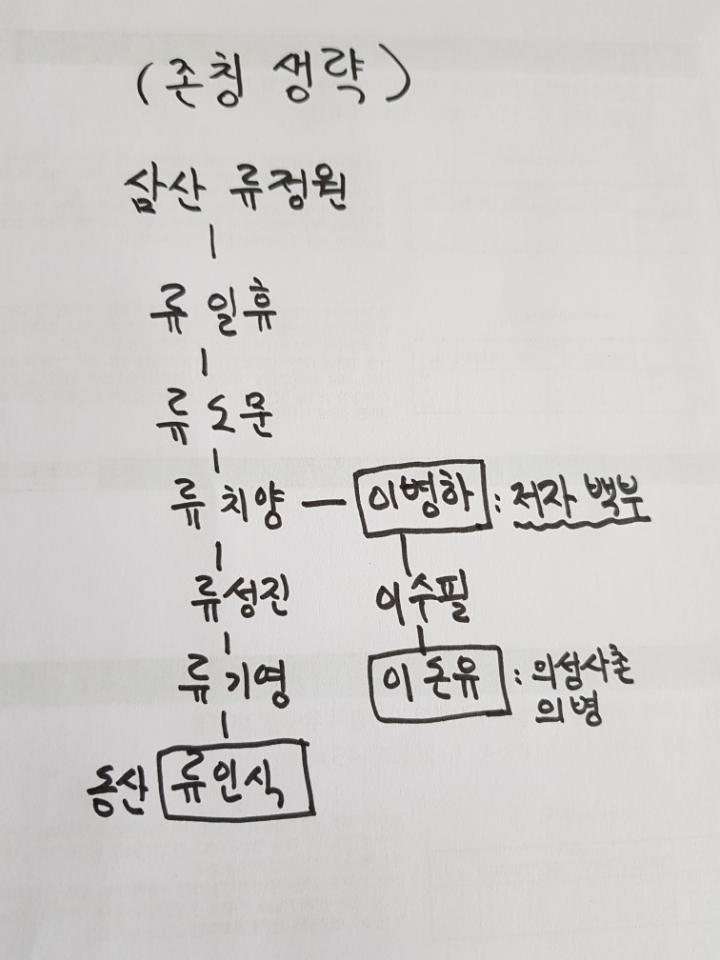 (존칭 생략)
삼산 류정원
류일휴
류도문
류치양 - 이병하 : 저자 백부
류성진 이수필
류기영 이돈유 : 의성사촌
의병
동산 류인식